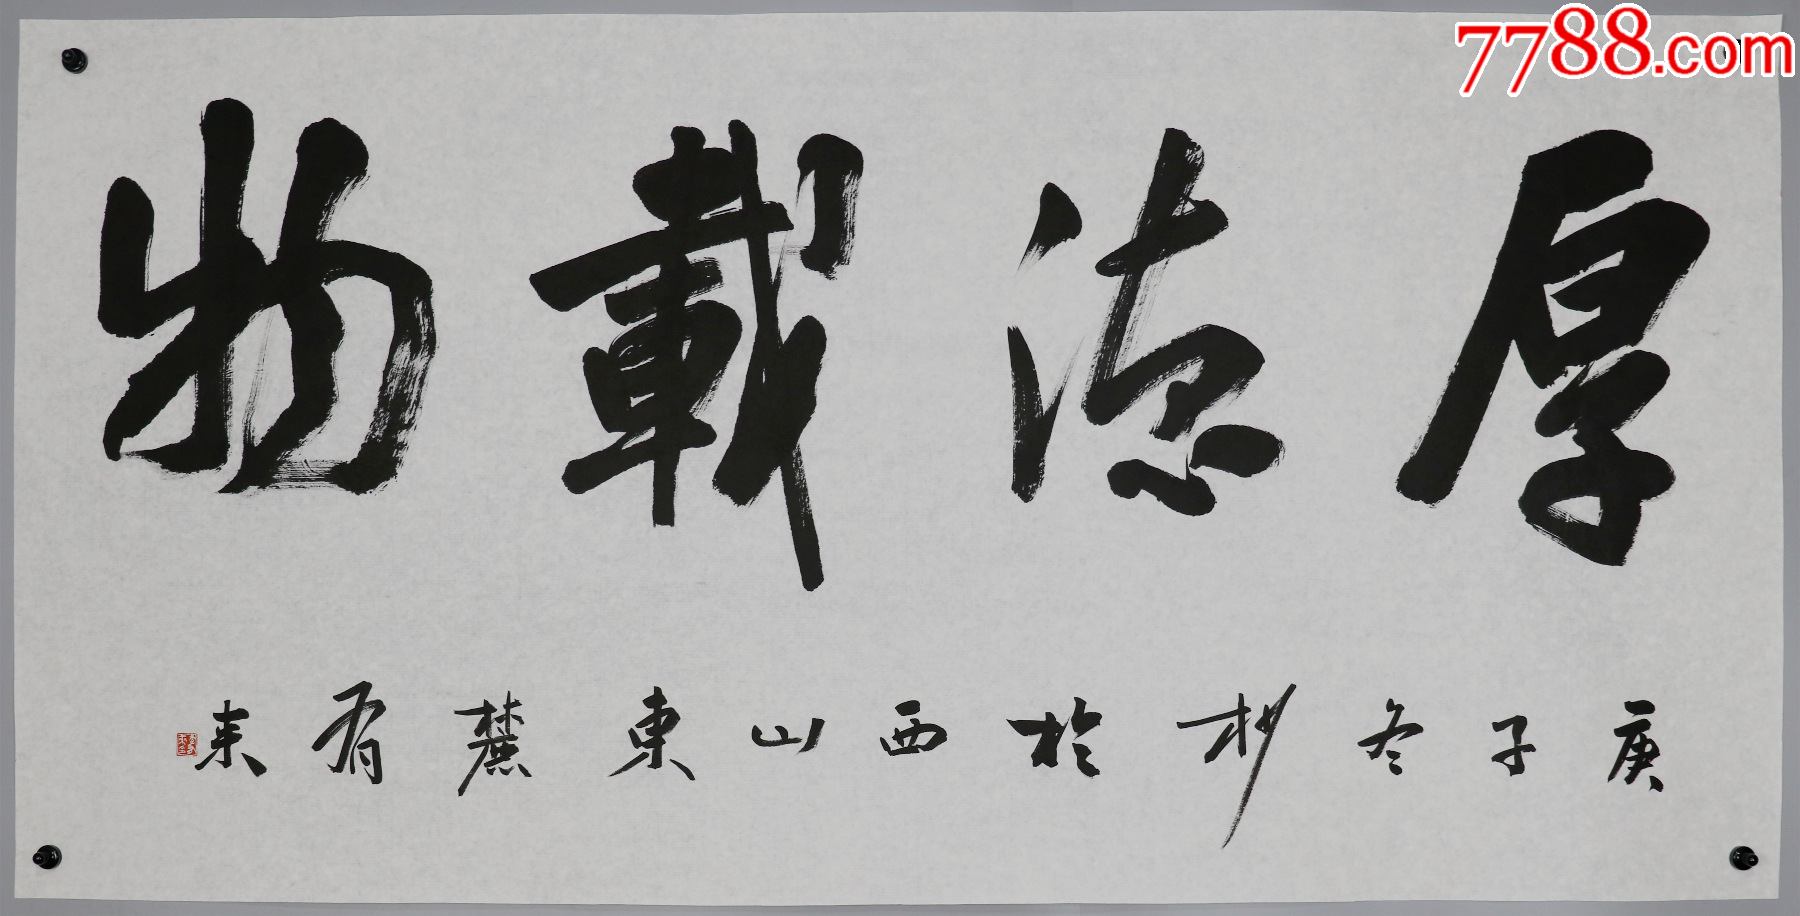 7788.com
厚德載物
庚子冬杪於西山東麓有来